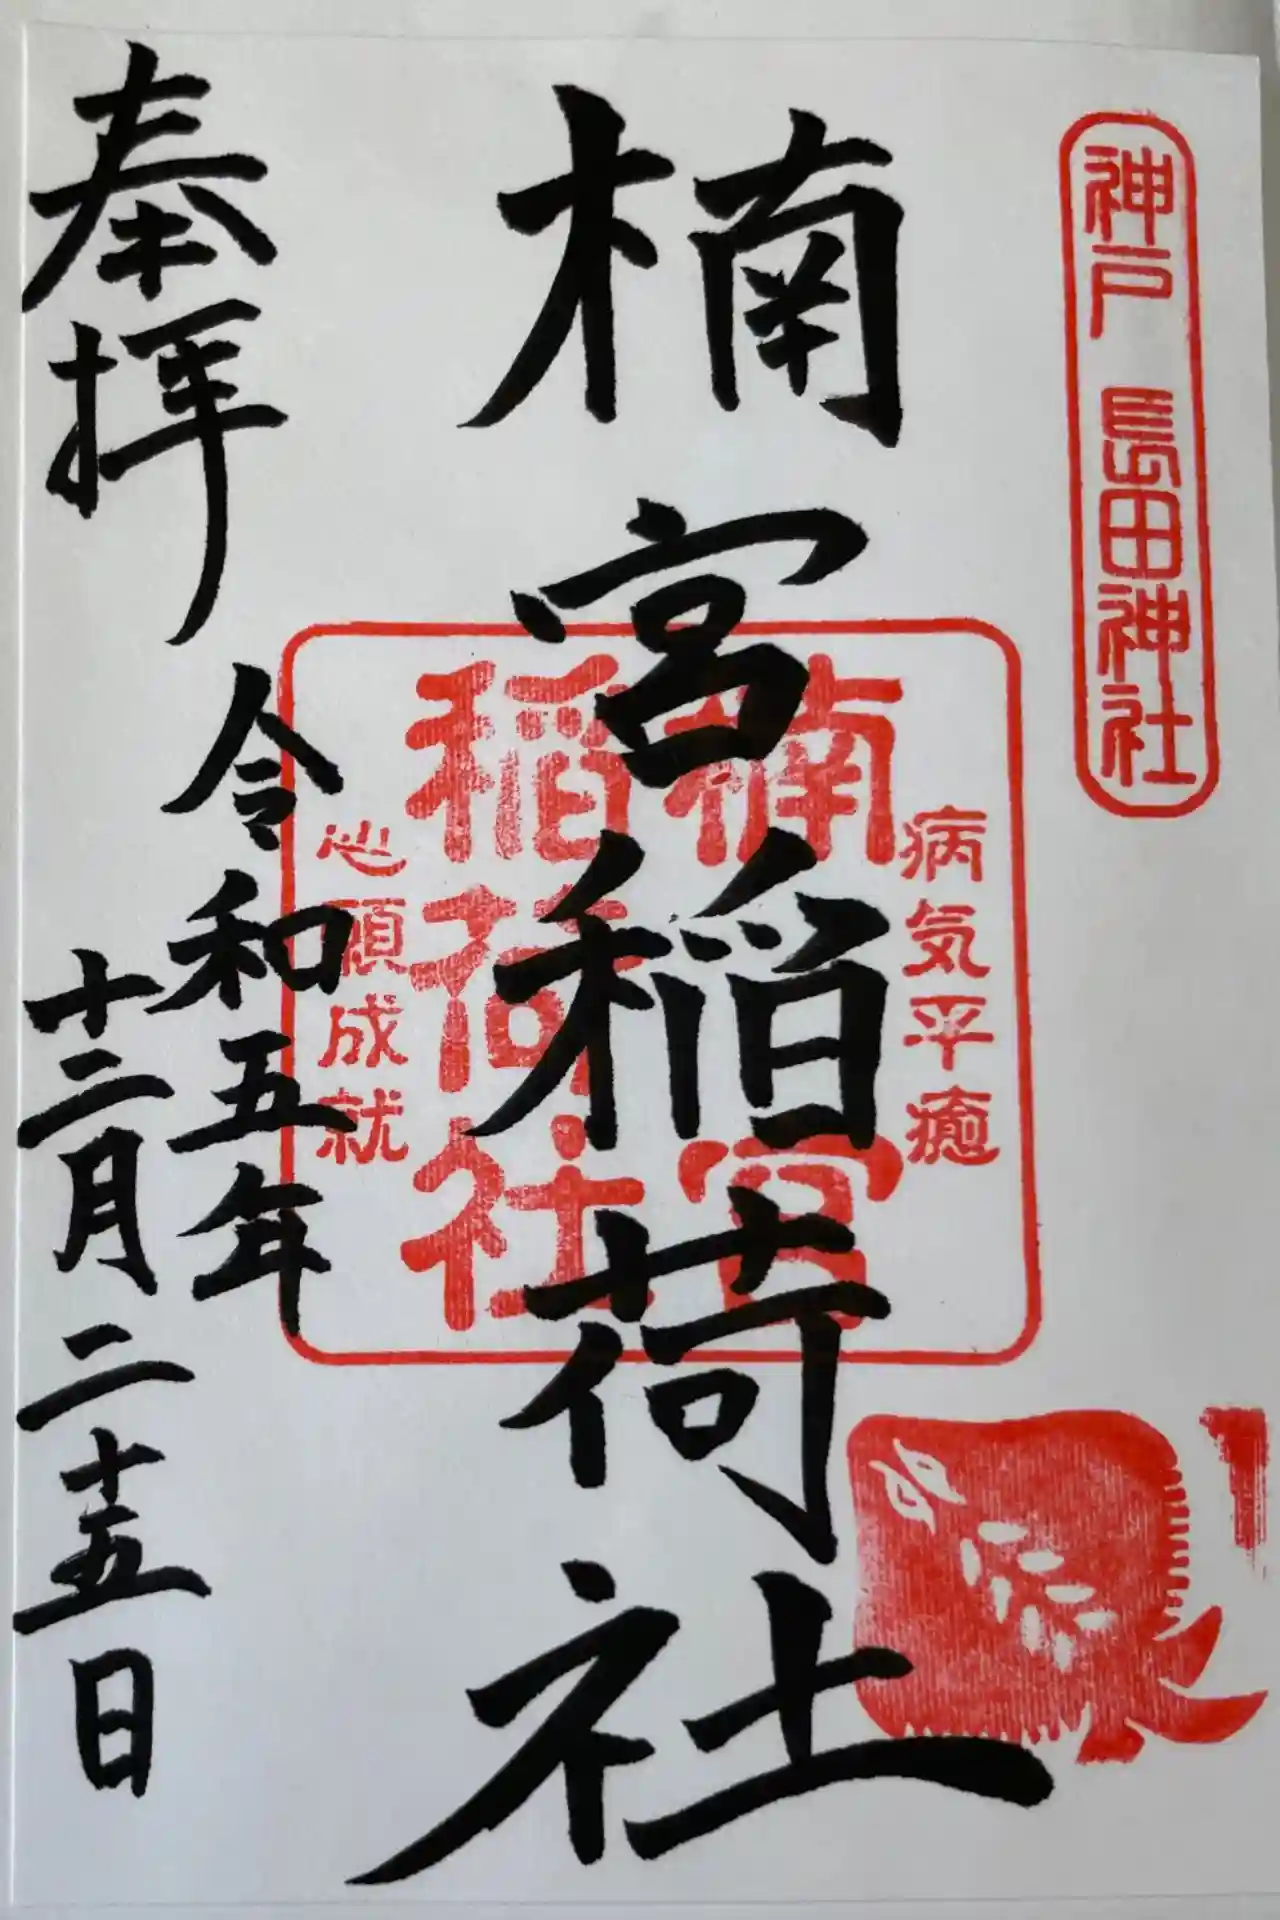 神戸 長田神社
楠宮稲荷社
病気平癒
楠宮
稲荷社
心願成就
奉拝
令和五年
十二月二十五日